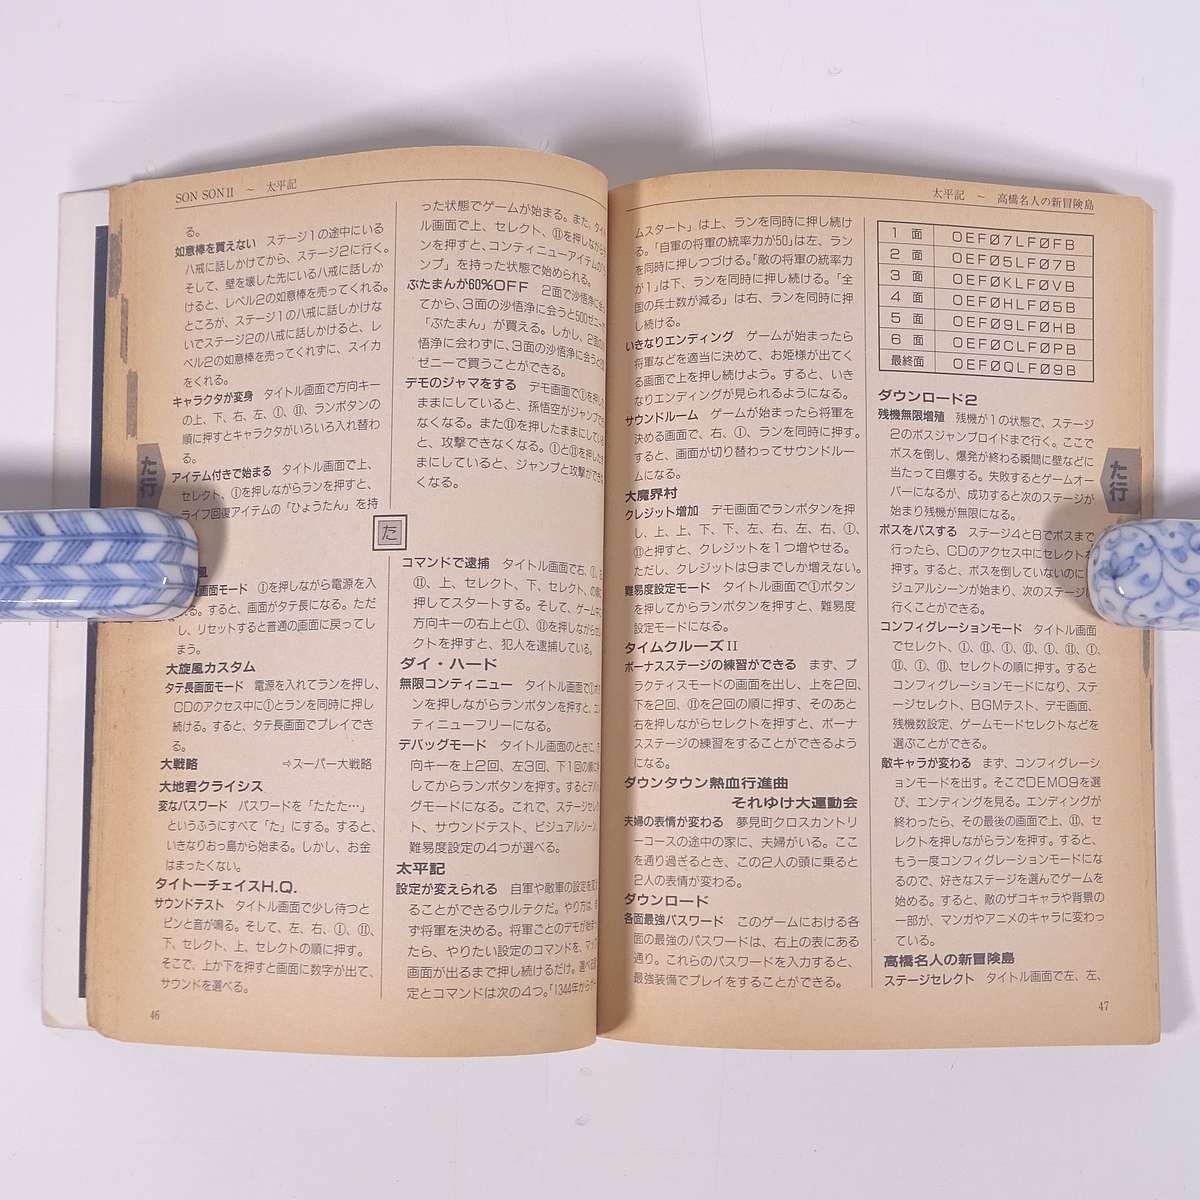 SON SON II ～ 太平記
る。
如意棒を買えない ステージ1の途中にいる
八戒に話しかけてから、ステージ2に行く。
そして、壁を壊した先にいる八戒に話しか
けると、レベル2の如意棒を売ってくれる。
ところが、ステージ1の八戒に話しかけな
いでステージ2の八戒に話しかけると、レ
ベル2の如意棒を売ってくれずに、スイカ
をくれる。
キャラクタが変身 タイトル画面で方向キー
の上、下、右、左、Ⓘ、Ⓘ Ⓘ、ランボタンの
順に押すとキャラクタがいろいろ入れ替わ
る。
アイテム付きで始まる タイトル画面で上、
セレクト、Ⓘを押しながらランを押すと、
ライフ回復アイテムの「ひょうたん」を持
った状態でゲームが始まる。また、タイ
ル画面で上、セレクト、Ⅱを押しながら
ンを押すと、コンティニューアイテムの
ンプ」を持った状態で始められる。
ぶたまんが60%OFF 2面で沙悟浄に会
てから、3面の沙悟浄に会うと500ゼニー
「ぶたまん」が買える。しかし、2面の
悟浄に会わずに、3面の沙悟浄に会うと
ゼニーで買うことができる。
デモのジャマをする デモ画面でⅠを押し
ままにしていると、孫悟空がジャンプで
なくなる。またⅡを押したままにしてい
と、攻撃できなくなる。ⅠとⅡを押した
まにしていると、ジャンプと攻撃がで
なくなる。
た
風
画面モード Ⅰを押しながら電源を入
る。すると、画面がタテ長になる。ただ
し、リセットすると普通の画面に戻ってし
まう。
大旋風カスタム
タテ長画面モード 電源を入れてランを押し、
CDのアクセス中にⅠとランを同時に押し
続ける。すると、タテ長画面でプレイでき
る。
大戦略 ⇨スーパー大戦略
大地君クライシス
変なパスワード パスワードを「たたた…」
というふうにすべて「た」にする。すると、
いきなりおっ島から始まる。しかし、お金
はまったくない。
タイトーチェイスH.Q.
サウンドテスト タイトル画面で少し待つと
ピンと音が鳴る。そして、左、右、Ⅰ、Ⅱ、
下、セレクト、上、セレクトの順に押す。
そこで、上か下を押すと画面に数字が出て、
サウンドを選べる。
コマンドで逮捕 タイトル画面で右、Ⅰ、
Ⅱ、上、セレクト、下、セレクト、の順に
押してスタートする。そして、ゲーム中に
方向キーの右上とⅠ、Ⅱを押しながらセ
クトを押すと、犯人を逮捕している。
ダイ・ハード
無限コンティニュー タイトル画面でⅠボタ
ンを押しながらランボタンを押すと、コン
ティニューフリーになる。
デバッグモード タイトル画面のときに、
向キーを上2回、左3回、下1回の順に
してからランボタンを押す。するとデバ
グモードになる。これで、ステージセレク
ト、サウンドテスト、ビジュアルシーン、
難易度設定の4つが選べる。
太平記
設定が変えられる 自軍や敵軍の設定を変
ることができるウルテクだ。やり方は、
ず将軍を決める。将軍ごとのデモが始ま
たら、やりたい設定のコマンドを、マップ
画面が出るまで押し続けるだけ。選べる
定とコマンドは次の4つ。「1344年から
46
た行
太平記 ～ 高橋名人の新冒険島
ムスタート」は上、ランを同時に押し続け
る。「自軍の将軍の統率力が50」は左、ラン
を同時に押しつづける。「敵の将軍の統率力
が1」は下、ランを同時に押し続ける。「全
国の兵士数が減る」は右、ランを同時に押
し続ける。
いきなりエンディング ゲームが始まったら
将軍などを適当に決めて、お姫様が出てく
る画面で上を押し続けよう。すると、いき
なりエンディングが見られるようになる。
サウンドルーム ゲームが始まったら将軍を
決める画面で、右、Ⅰ、ランを同時に押す。
すると、画面が切り替わってサウンドルー
ムになる。
大魔界村
クレジット増加 デモ画面でランボタンを押
し、上、上、下、下、左、右、左、右、Ⅰ、
Ⅱと押すと、クレジットを1つ増やせる。
ただし、クレジットは9までしか増えない。
難易度設定モード タイトル画面でⅠボタン
を押してからランボタンを押すと、難易度
設定モードになる。
タイムクルーズⅡ
ボーナスステージの練習ができる まず、プ
ラクティスモードの画面を出し、上を2回、
下を2回、Ⅱを2回の順に押す、そのあと
右を押しながらセレクトを押すと、ボーナ
スステージの練習をすることができるよう
になる。
ダウンタウン熱血行進曲
それゆけ大運動会
夫婦の表情が変わる 夢見町クロスカントリ
ーコースの途中の家に、夫婦がいる。ここ
を通り過ぎるとき、この2人の頭に乗ると
2人の表情が変わる。
ダウンロード
各面最強パスワード このゲームにおける各
面の最強のパスワードは、右上の表にある
通り。これらのパスワードを入力すると、
最強装備でプレイをすることができる。
1 面 OEFØ7LFØFB
2 面 OEFØ5LFØ7B
3 面 OEFØKLFØVB
4 面 OEFØHLFØ5B
5 面 OEFØ9LFØHB
6 面 OEFØCLFØPB
最終面 OEFØQLFØ9B
ダウンロード2
残機無限増殖 残機が1の状態で、ステージ
2のボスジャンプロイドまで行く。ここで
ボスを倒し、爆発が終わる瞬間に壁などに
当たって自爆する。失敗するとゲームオー
バーになるが、成功すると次のステージが
始まり残機が無限になる。
ボスをパスする ステージ4と8でボスまで
行ったら、CDのアクセス中にセレクトを
押す。すると、ボスを倒していないのに
ジュアルシーンが始まり、次のステージ
行くことができる。
コンフィグレーションモード タイトル画面
でセレクト、Ⅰ、Ⅱ、Ⅰ、Ⅱ、Ⅰ、Ⅱ、Ⅰ、
Ⅱ、Ⅰ、Ⅱ、セレクトの順に押す。すると
コンフィグレーションモードになり、ステ
ージセレクト、BGMテスト、デモ画面、
残機数設定、ゲームモードセレクトなどを
選ぶことができる。
敵キャラが変わる まず、コンフィグレーシ
ョンモードを出す。そこでDEMO9を選
び、エンディングを見る。エンディングが
終わったら、その最後の画面で上、Ⅱ、セ
レクトを押しながらランを押す。すると、
もう一度コンフィグレーションモードにな
るので、好きなステージを選んでゲームを
始める。すると、敵のザコキャラや背景の
一部が、マンガやアニメのキャラに変わっ
ている。
高橋名人の新冒険島
ステージセレクト タイトル画面で左、左、
47
た行